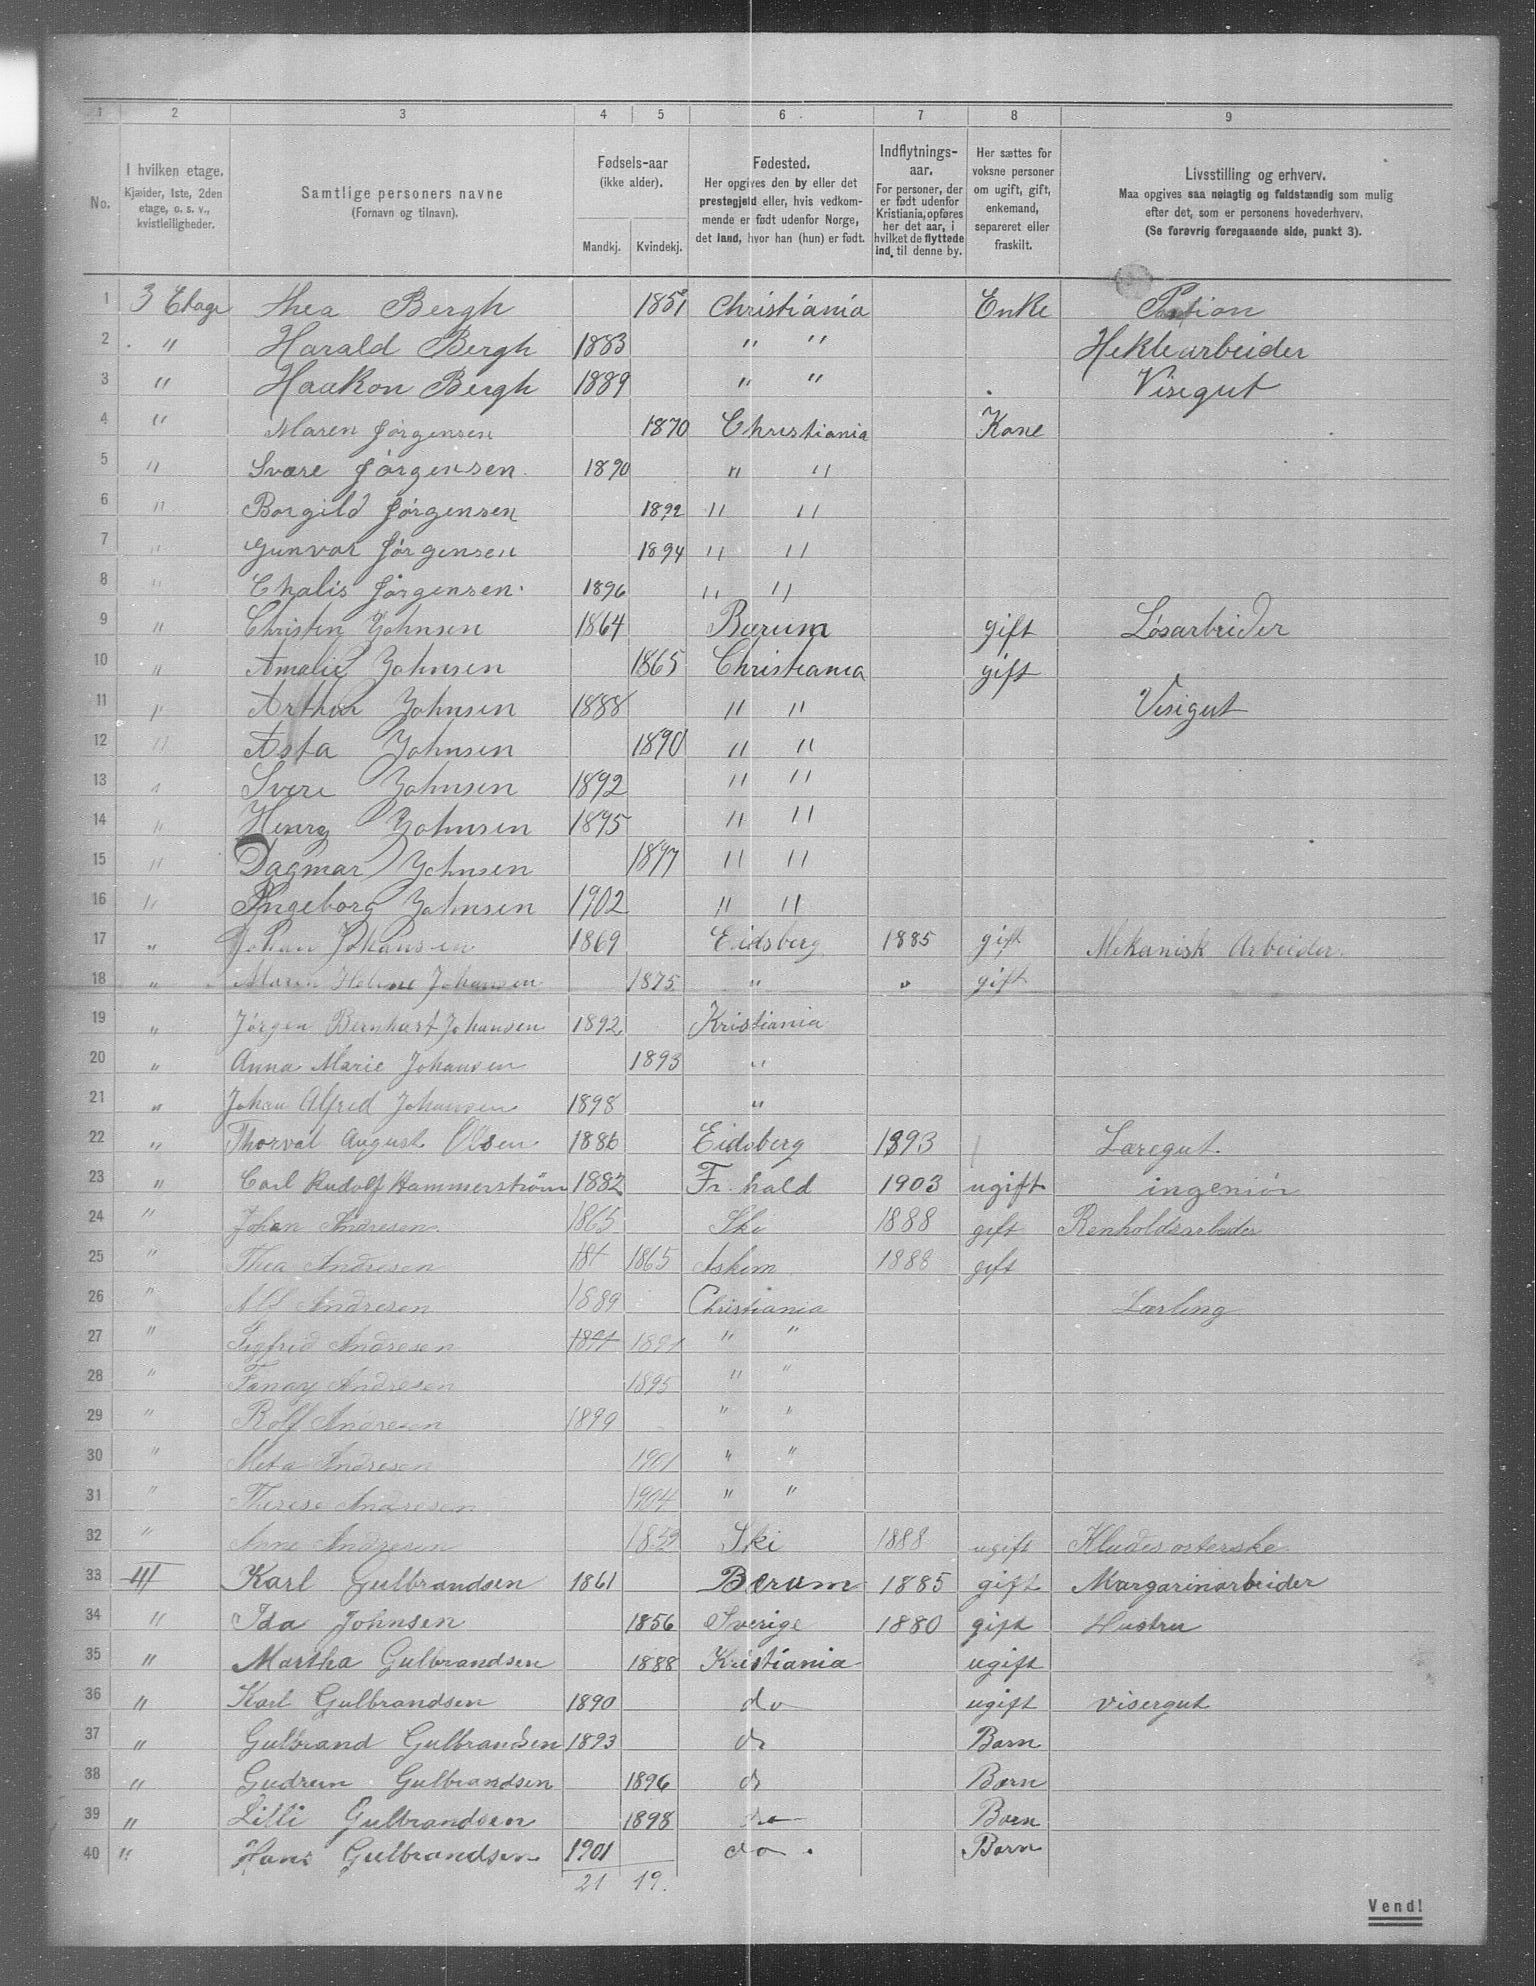 1 2 3 4 5 6 7 8 9
No. I hvilken etage. Kjælder, 1ste, 2den etage, o. s. v., kvistleiligheder. Samtlige personers navne (Fornavn og tilnavn). Fødsels-aar (ikke alder). Mandkj. Kvindekj. Fødested. Her opgives den by eller det prestegjeld eller, hvis vedkommende er født udenfor Norge, det land, hvor han (hun) er født. Indflytnings-aar. For personer, der er født udenfor Kristiania, opføres her det aar, i hvilket de flyttede ind til denne by. Her sættes for voksne personer om ugift, gift, enkemand, separeret eller fraskilt. Livsstilling og erhverv. Maa opgives saa nøiagtig og fuldstændig som mulig efter det, som er personens hovederhverv. (Se forøvrig foregaaende side, punkt 3).
1 3 Etage Thea Bergh 1851 Christiania Enke
2 " Harald Bergh 1883 " " Heklearbeider
3 " Haakon Bergh 1889 " " Visegut
4 " Maren Jørgensen 1870 Christiania Kone
5 " Svære Jørgensen 1890 " "
6 " Borgild Jørgensen 1892 " "
7 " Gunvor Jørgensen 1894 " "
8 " Chalis Jørgensen 1896 " "
9 " Christin Johnsen 1864 Bærum gift Løsarbeider
10 " Amalie Johnsen 1865 Christiania gift
11 " Arthur Johnsen 1888 " " Visegut
12 " Asta Johnsen 1890 " "
13 " Svere Johnsen 1892 " "
14 " Henry Johnsen 1895 " "
15 " Dagmar Johnsen 1897 " "
16 " Ingeborg Johnsen 1902 " "
17 " Johan Johansen 1869 Eidsberg 1885 gift Mekanisk Arbeider
18 " Maren Helene Johansen 1875 " " gift
19 " Jørgen Bernhart Johansen 1892 Kristiania
20 " Anna Marie Johansen 1893 "
21 " Johan Alfred Johansen 1898 "
22 " Thorval August Olsen 1886 Eidsberg 1893 Læregut.
23 " Carl Rudolf Hammerstrøm 1882 Fr. hald 1903 ugift ingeniør
24 " Johan Andresen 1865 Ski 1888 gift Renholdsarbeider
25 " Thea Andresen 1865 Askim 1888 gift
26 " Alf Andresen 1889 Christiania Lærling
27 " Sigfrid Andresen 1891 1891 " "
28 " Fanny Andresen 1895 " "
29 " Rolf Andresen 1899 " "
30 " Meta Andresen 1901 " "
31 " Therese Andresen 1904 " "
32 " Anne Andresen Ski 1888 ugift Kludesosterske
33 4 Karl Gulbrandsen 1861 Bærum 1885 gift Margarinarbeider
34 " Ida Johnsen 1856 Sverige 1880 gift Hustru
35 " Martha Gulbrandsen 1888 Kristiania ugift
36 " Karl Gulbrandsen 1890 do ugift visergut
37 " Gulbrand Gulbrandsen 1893 do Barn
38 " Gudrun Gulbrandsen 1896 do Barn
39 " Lilli Gulbrandsen 1898 do Barn
40 " Hans Gulbrandsen 1901 do Barn
21 19.
Vend!